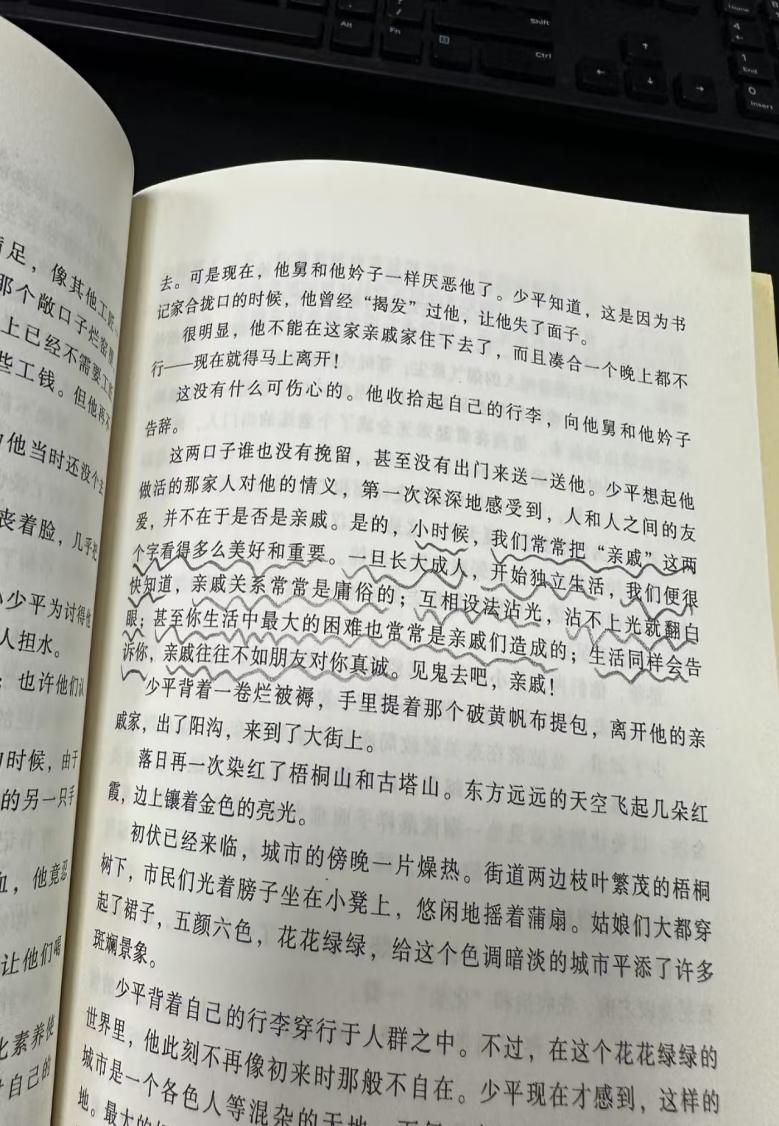 足，像其他工匠一
那个敞口子烂窑里
上已经不需要工
些工钱。但他再不
他当时还没个
丧着脸，几乎把
少平为讨得他
人担水。
；也许他们认
时候，由于
的另一只手
血，他竟忍
让他们喝
化素养使
自己的
去。可是现在，他舅和他妗子一样厌恶他了。少平知道，这是因为书
记家合拢口的时候，他曾经“揭发”过他，让他失了面子。
很明显，他不能在这家亲戚家住下去了，而且凑合一个晚上都不
行——现在就得马上离开！
这没有什么可伤心的。他收拾起自己的行李，向他舅和他妗子
告辞。
这两口子谁也没有挽留，甚至没有出门来送一送他。少平想起他
做活的那家人对他的情义，第一次深深地感受到，人和人之间的友
爱，并不在于是否是亲戚。是的，小时候，我们常常把“亲戚”这两
个字看得多么美好和重要。一旦长大成人，开始独立生活，我们便很
快知道，亲戚关系常常是庸俗的；互相设法沾光，沾不上光就翻白
眼；甚至你生活中最大的困难也常常是亲戚们造成的；生活同样会告
诉你，亲戚往往不如朋友对你真诚。见鬼去吧，亲戚！
少平背着一卷烂被褥，手里提着那个破黄帆布提包，离开他的亲
戚家，出了阳沟，来到了大街上。
落日再一次染红了梧桐山和古塔山。东方远远的天空飞起几朵红
霞，边上镶着金色的亮光。
初伏已经来临，城市的傍晚一片燥热。街道两边枝叶繁茂的梧桐
树下，市民们光着膀子坐在小凳上，悠闲地摇着蒲扇。姑娘们大都穿
起了裙子，五颜六色，花花绿绿，给这个色调暗淡的城市平添了许多
斑斓景象。
少平背着自己的行李穿行于人群之中。不过，在这个花花绿绿的
世界里，他此刻不再像初来时那般不自在。少平现在才感到，这样的
城市是一个各色人等混杂的天地
地。最大的